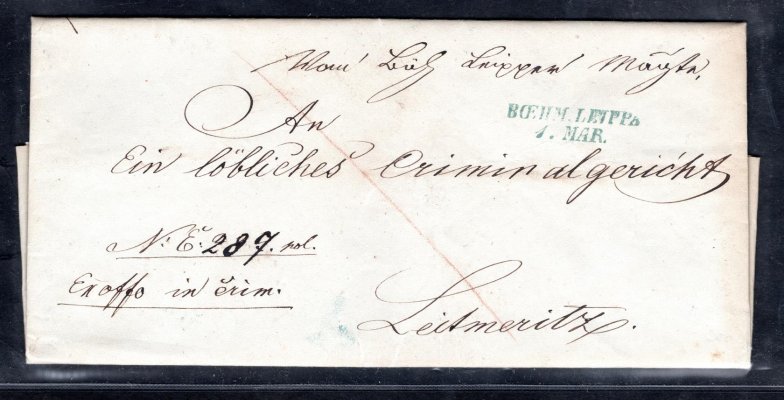 Vom Böh Leipper Magte.
BŒHM. LEIPPA
1. MAR.
An
Ein löbliches Criminalgericht
N: E: 287. pol.
Exoffo in Crim.
Leitmeritz.